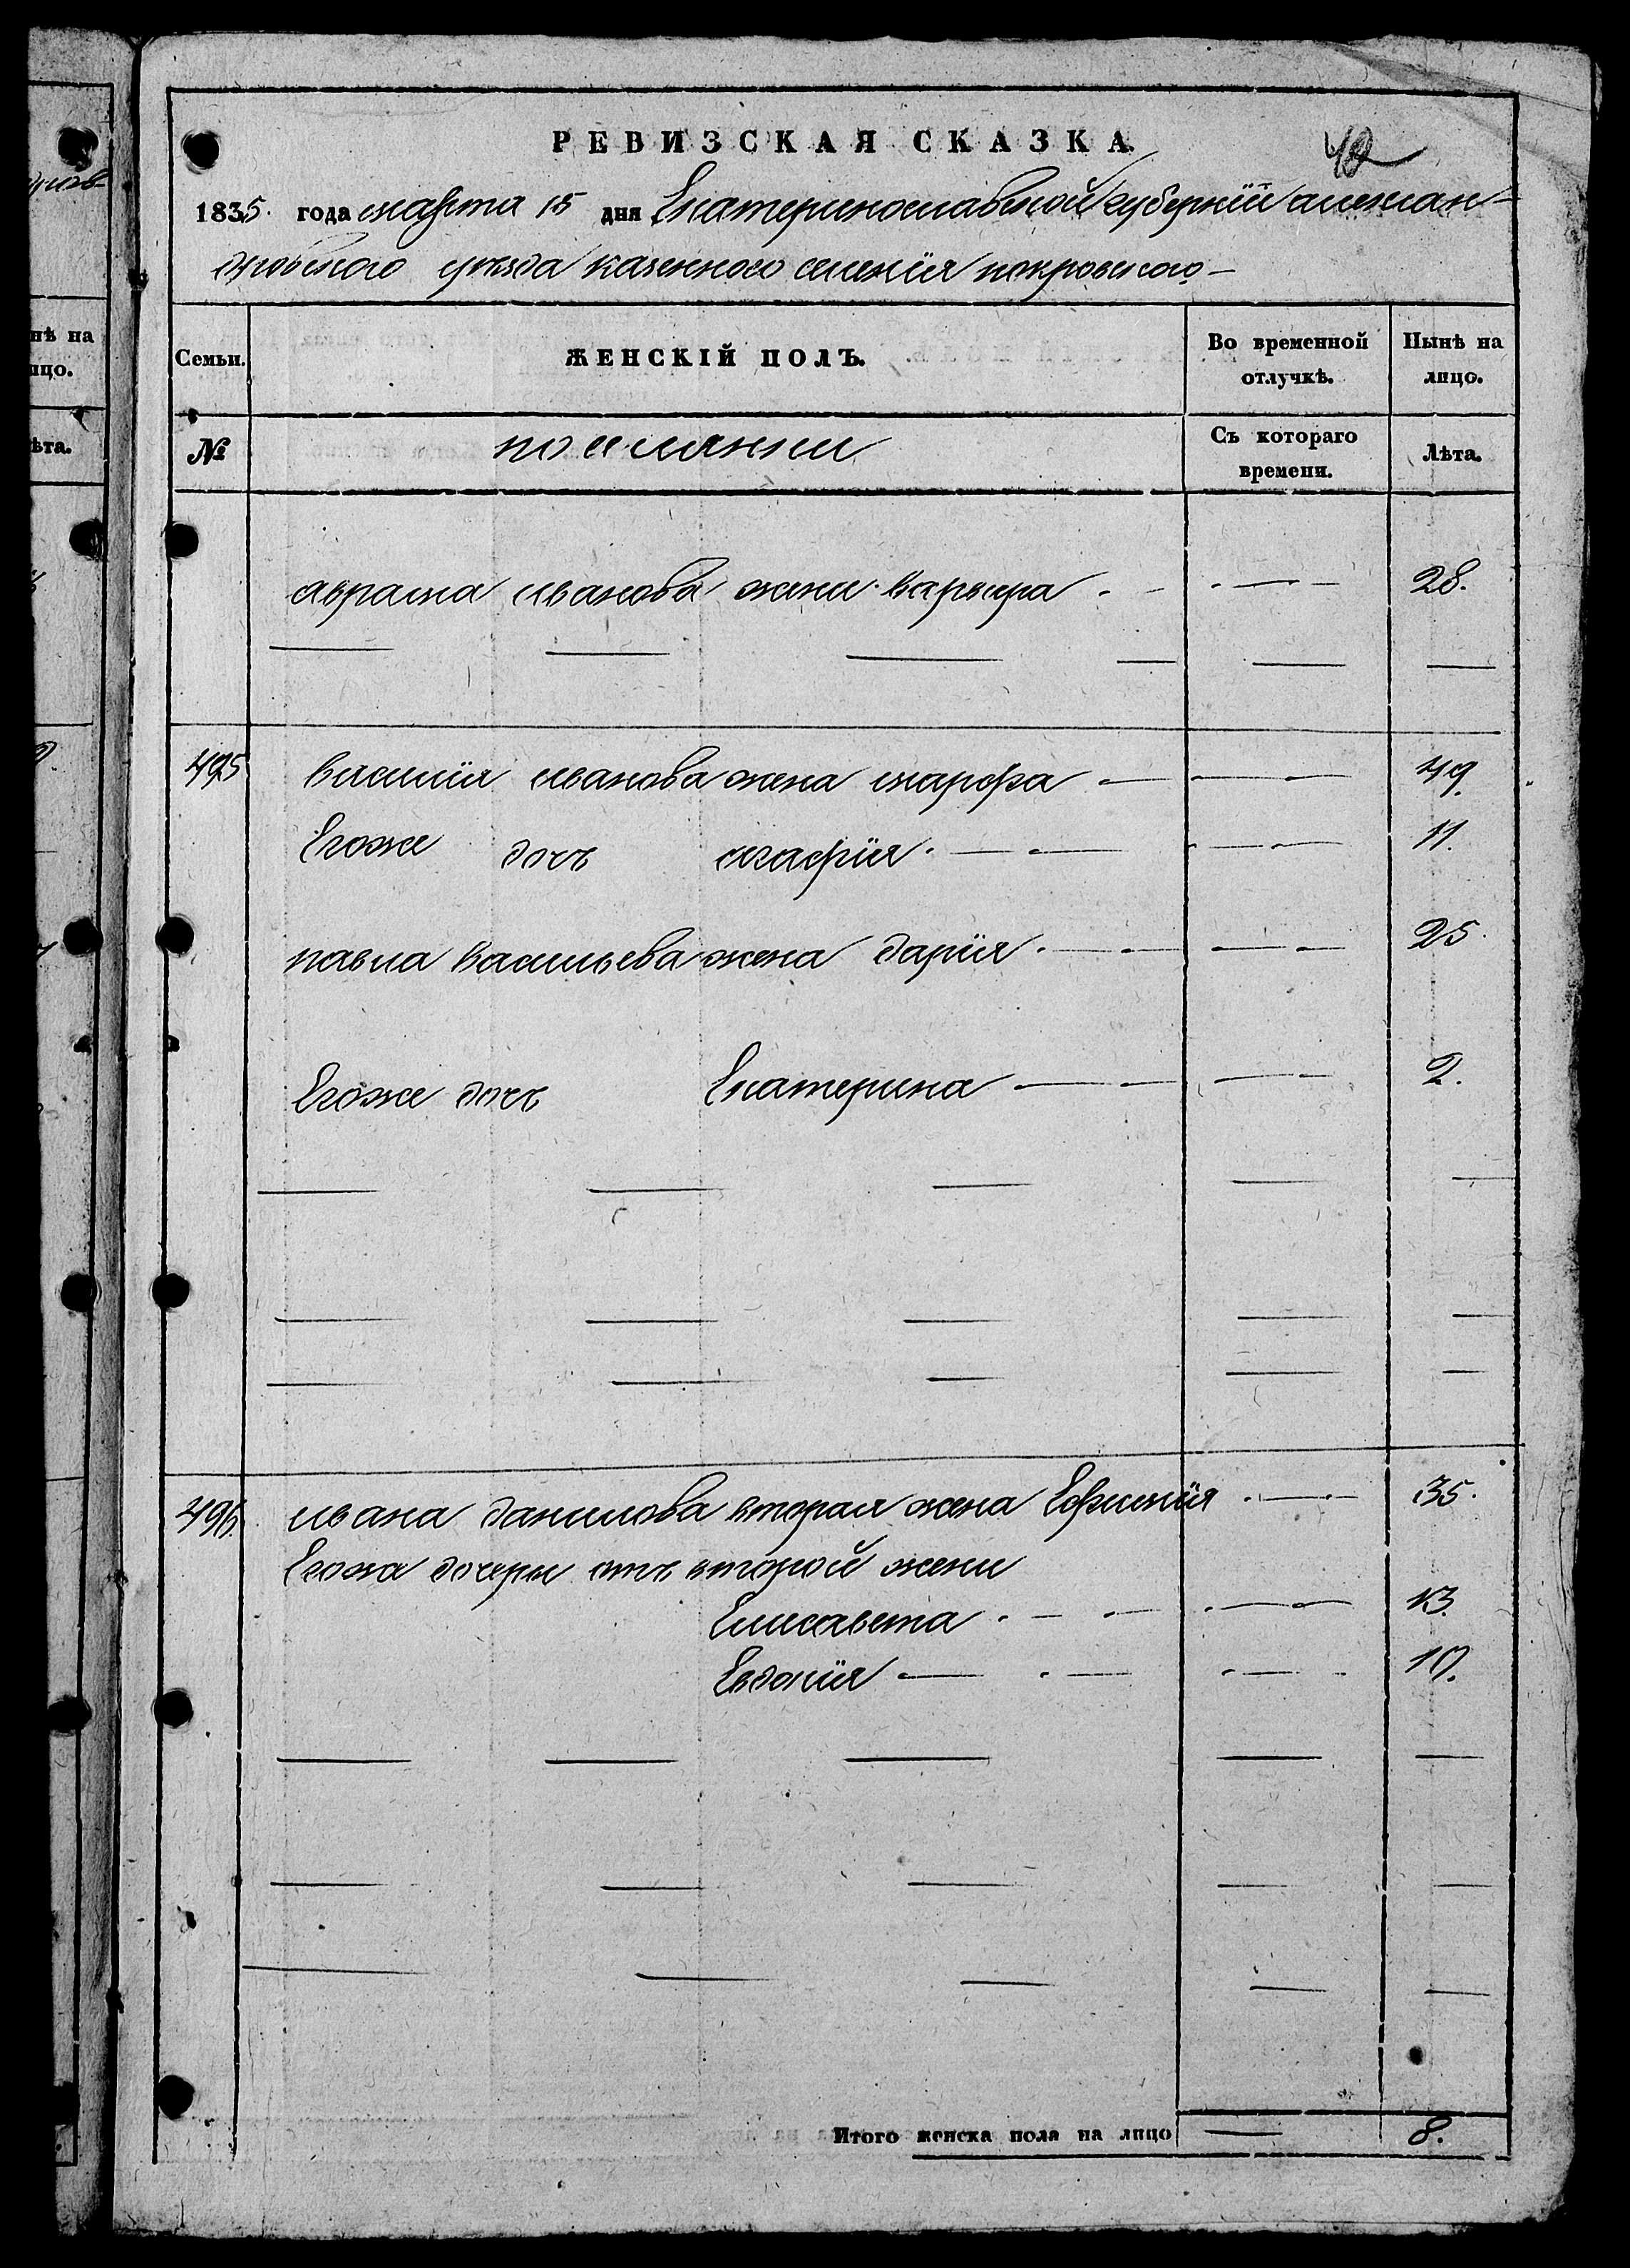 РЕВИЗСКАЯ СКАЗКА.
42
1835. года марта 15 дня Екатеринославской губернїи александ-
ровского уѣзда казенного селенїя покровского.
Семьи.
ЖЕНСКІЙ ПОЛЪ.
Во временной отлучкѣ.
Нынѣ на лицо.
№
поселянки
Съ котораго времени.
Лѣта.
аврама иванова жена варвара 28.
495 василїя иванова жена марфа 49.
Егоже дочь агафїя 11.
павла васильева жена дарїя 25.
Егоже дочь Екатерина 2.
496. ивана данилова вторая жена Ефимїя 35.
Егоже дочери отъ второй жены
Елисавета 13.
Евдокїя 10.
Итого женска пола на лицо 8.
нѣ на
ицо.
ѣта.